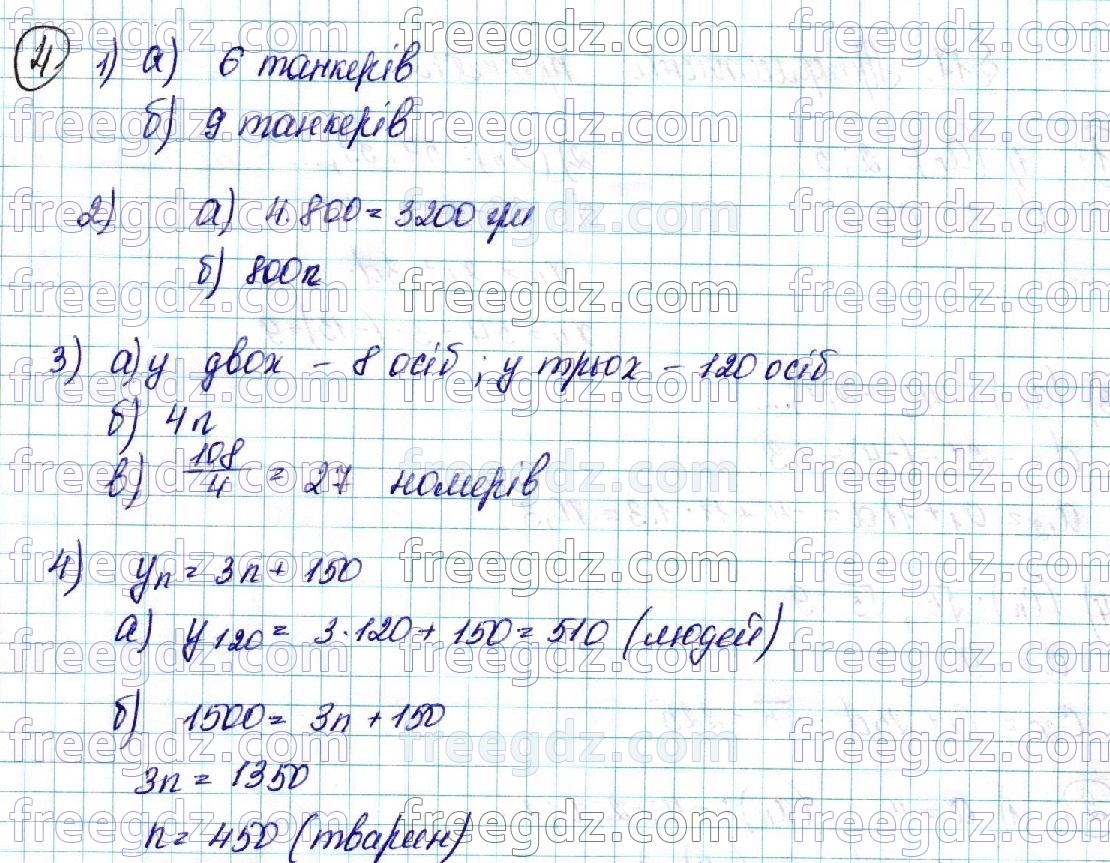 4 1) а) 6 танкерів
б) 9 танкерів
2) а) 4·800 = 3200 грн
б) 800n
3) а) у двох – 8 осіб; у трьох – 120 осіб
б) 4n
в) 108/4 = 27 номерів
4) yn = 3n + 150
а) y120 = 3·120 + 150 = 510 (людей)
б) 1500 = 3n + 150
3n = 1350
n = 450 (тварин)
freegdz.com